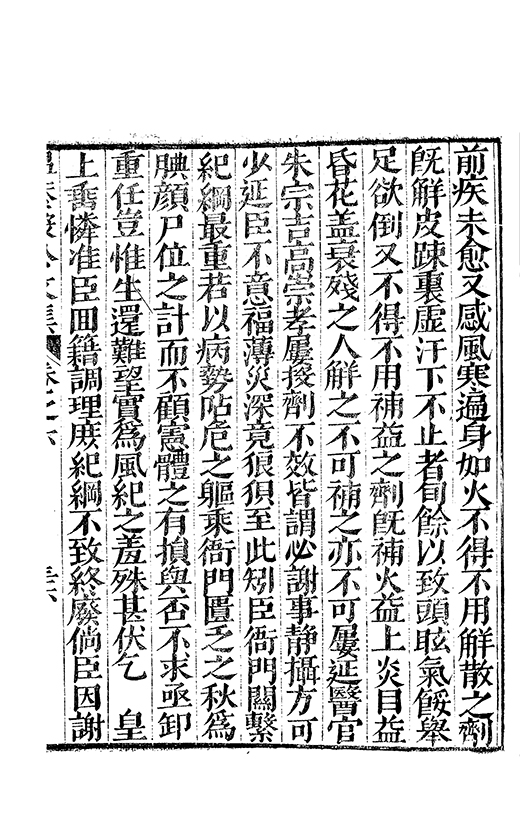 前疾未愈又感風寒遍身如火不得不用解散之劑
既解皮踈裏虛汗下不止者旬餘以致頭眩氣餒舉
足欲倒又不得不用補益之劑既補火益上炎目益
昏花盖衰殘之人解之不可補之亦不可屢延醫官
朱宗吉高崇孝屢投劑不效皆謂必謝事静攝方可
少延臣不意福薄災深竟狼狽至此矧臣衙門關繫
紀綱最重若以病勢阽危之軀乘衙門匱乏之秋為
腆顔尸位之計而不顧憲體之有損與否不求亟卸
重任豈惟生還難望實為風紀之羞殊甚伏乞 皇
上垂憐准臣回籍調理庶紀綱不致終廢倘臣因謝
公文集 卷之六 三六